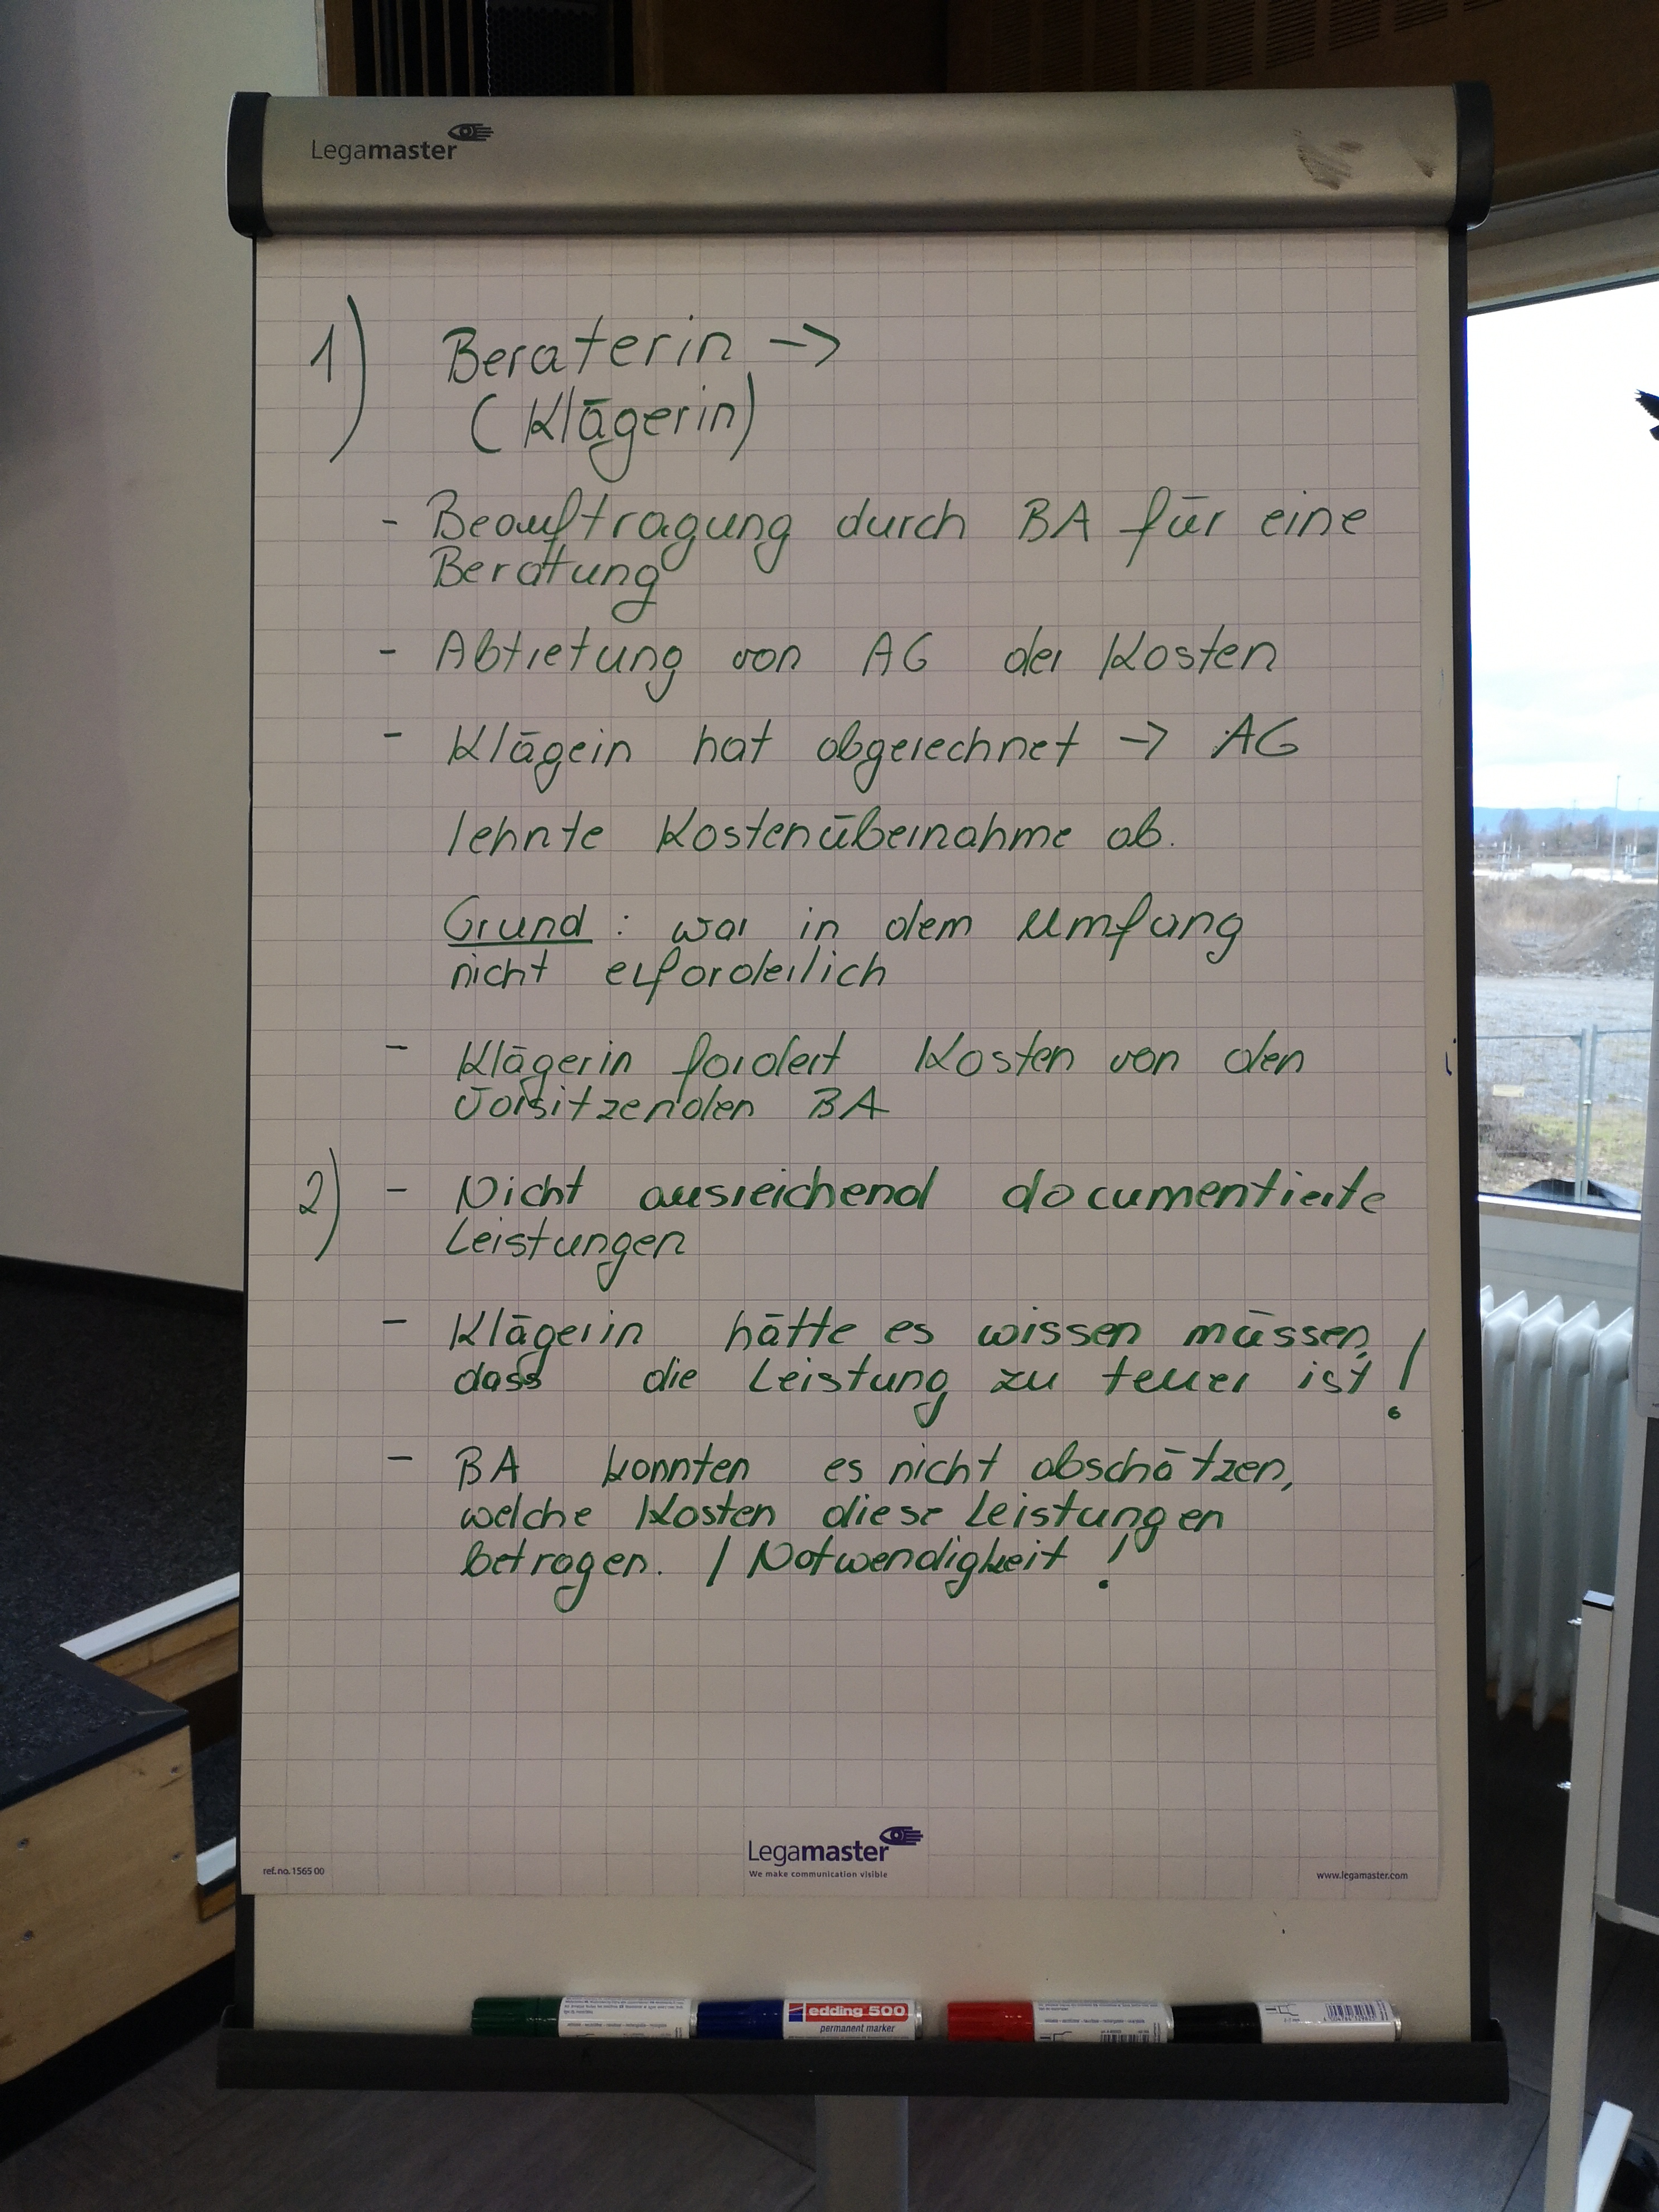 Legamaster
1) Beraterin →
(Klägerin)
- Beauftragung durch BA für eine
Beratung
- Abtretung von AG der Kosten
- Klägein hat abgerechnet → AG
lehnte Kostenübernahme ab.
Grund: war in dem Umfang
nicht erforderlich
- Klägerin fordert Kosten von den
Vorsitzenden BA
2) - Nicht ausreichend documentierte
Leistungen
- Klägerin hätte es wissen müssen,
dass die Leistung zu teuer ist!
- BA konnten es nicht abschätzen,
welche Kosten diese Leistungen
betragen. / Notwendigkeit!
Legamaster
We make communication visible
ref.no. 1565 00
www.legamaster.com
edding 500
permanent marker